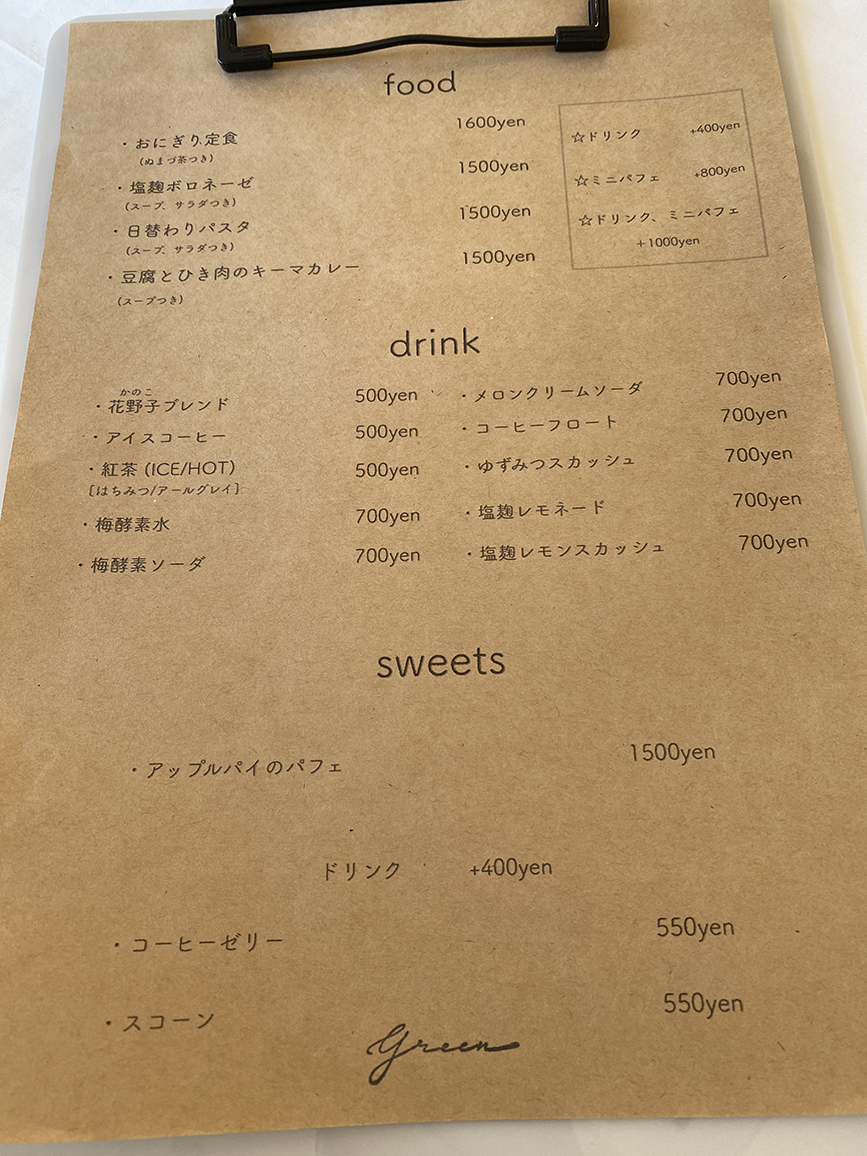 food
・おにぎり定食 1600yen
(ぬまづ茶つき)
・塩麹ボロネーゼ 1500yen
(スープ、サラダつき)
・日替わりパスタ 1500yen
(スープ、サラダつき)
・豆腐とひき肉のキーマカレー 1500yen
(スープつき)
☆ドリンク +400yen
☆ミニパフェ +800yen
☆ドリンク、ミニパフェ
+1000yen
drink
かのこ
・花野子ブレンド 500yen
・アイスコーヒー 500yen
・紅茶 (ICE/HOT) 500yen
[はちみつ/アールグレイ]
・梅酵素水 700yen
・梅酵素ソーダ 700yen
・メロンクリームソーダ 700yen
・コーヒーフロート 700yen
・ゆずみつスカッシュ 700yen
・塩麹レモネード 700yen
・塩麹レモンスカッシュ 700yen
sweets
・アップルパイのパフェ 1500yen
ドリンク +400yen
・コーヒーゼリー 550yen
・スコーン 550yen
Green